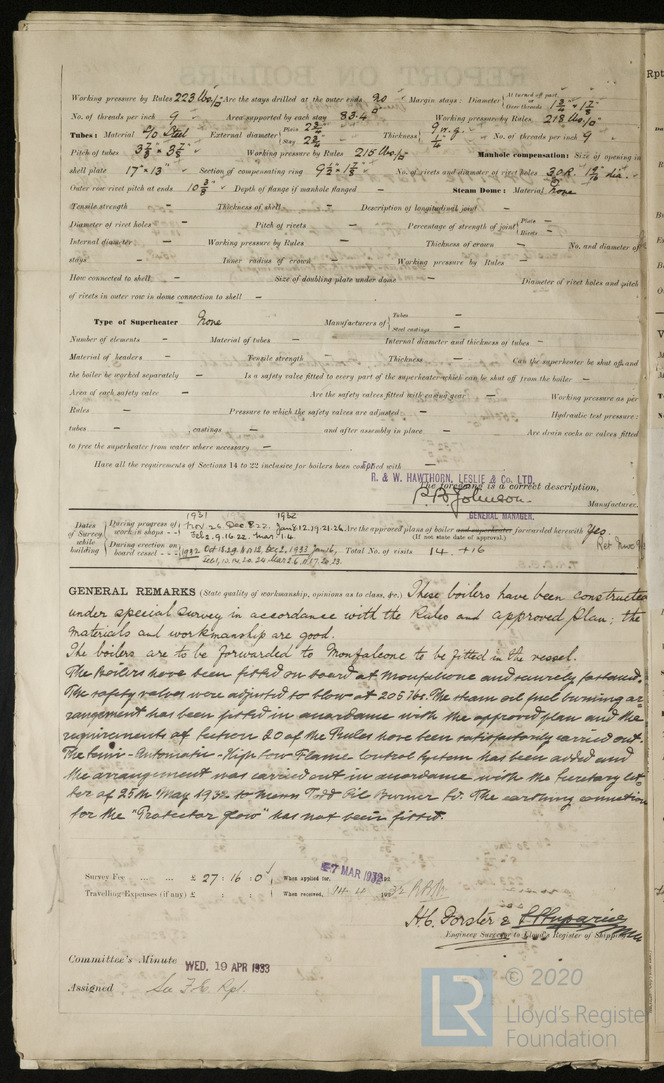 Working pressure by Rules 223 lbs/□" Are the stays drilled at the outer ends no Margin stays: Diameter { At turned off part, or Over threads 1 3/4" & 1 7/8"
No. of threads per inch 9 Area supported by each stay 83.4 □" Working pressure by Rules 218 lbs/□"
Tubes: Material Steel External diameter { Plain 2 3/4" Stay 2 3/4" Thickness { 9 w.g. 1/4" No. of threads per inch 9
Pitch of tubes 3 7/8" × 3 7/8" Working pressure by Rules 215 lbs/□" Manhole compensation: Size of opening in
shell plate 17" × 13" Section of compensating ring 9 1/2" × 1 7/8" No. of rivets and diameter of rivet holes 30 R. dia.
Outer row rivet pitch at ends 10 3/8" Depth of flange if manhole flanged - Steam Dome: Material None
Tensile strength - Thickness of shell - Description of longitudinal joint -
Diameter of rivet holes - Pitch of rivets - Percentage of strength of joint { Plate - Rivets -
Internal diameter - Working pressure by Rules - Thickness of crown - No. and diameter of
stays - Inner radius of crown - Working pressure by Rules -
How connected to shell - Size of doubling plate under dome - Diameter of rivet holes and pitch
of rivets in outer row in dome connection to shell -
Type of Superheater None Manufacturers of { Tubes - Steel castings -
Number of elements - Material of tubes - Internal diameter and thickness of tubes -
Material of headers - Tensile strength - Thickness - Can the superheater be shut off and
the boiler be worked separately - Is a safety valve fitted to every part of the superheater which can be shut off from the boiler -
Area of each safety valve - Are the safety valves fitted with easing gear - Working pressure as per
Rules - Pressure to which the safety valves are adjusted: - Hydraulic test pressure:
tubes - castings - and after assembly in place - Are drain cocks or valves fitted
to free the superheater from water where necessary -
Have all the requirements of Sections 14 to 22 inclusive for boilers been complied with -
For
R. & W. HAWTHORN, LESLIE & Co. LTD.
The foregoing is a correct description,
Johnson
Manufacturer.
GENERAL MANAGER.
Dates of Survey while building { During progress of work in shops - - 1931 Nov. 26 Dec. 8. 22. 1932 Jan. 5. 12. 19. 21. 26. Feb. 2. 9. 16. 22. Mar. 1. 4. Are the approved plans of boiler and superheater forwarded herewith Yes.
(If not state date of approval.)
During erection on board vessel - - - 1932 Oct. Dec. 2. 1933 Jan. Total No. of visits 14. + 16
GENERAL REMARKS (State quality of workmanship, opinions as to class, &c.) These boilers have been constructed
under special survey in accordance with the Rules and approved plan; the
materials and workmanship are good.
The boilers are to be forwarded to Monfalcone to be fitted in the vessel.
The Boilers have been fitted on board at Monfalcone and securely fastened.
The safety valves were adjusted to blow at 205 lbs. The steam oil fuel burning ar-
rangement has been fitted in accordance with the approved plan and the
requirements of Section 20 of the Rules have been satisfactorily carried out.
The Semi-Automatic-High Low Flame Control System has been added and
the arrangement was carried out in accordance with the Secretary let-
ter of 25th May 1932 to Messrs Todd Oil Burner Ld. The earthing connection
for the "Protector glow" has not been fitted.
Survey Fee ... ... £ 27 : 16 : 0 When applied for, 7 MAR 1932 192
Travelling Expenses (if any) £ : : When received, 14. 4. 1932
H.C. Forster &
Engineer Surveyor to Lloyd's Register of Shipping
Committee's Minute WED. 19 APR 1933
Assigned See F.E. Rpt.
© 2020
LR
Lloyd's Register
Foundation
Rpt